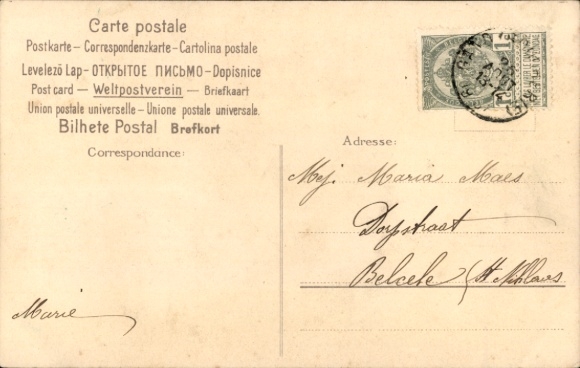 Carte postale
Postkarte – Correspondenzkarte – Cartolina postale
Levelező Lap – ОТКРЫТОЕ ПИСЬМО – Dopisnice
Post card – Weltpostverein – Briefkaart
Union postale universelle – Unione postale universale.
Bilhete Postal Brefkort
Correspondance:
Adresse:
Mej. Maria Maes
Dorpstraat
Belcele (St Niklaas
Marie
1